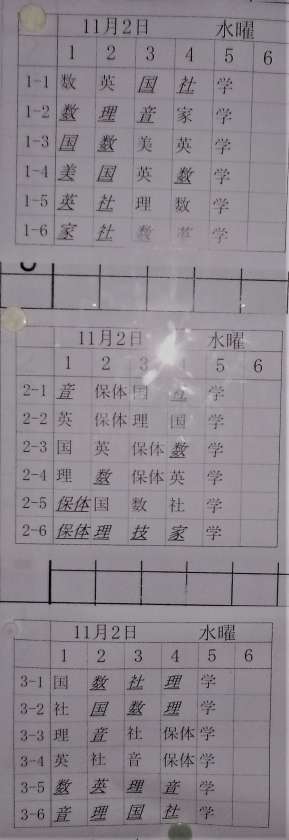 11月2日 水曜
1 2 3 4 5 6
1-1 数 英 国 社 学
1-2 数 理 音 家 学
1-3 国 数 美 英 学
1-4 美 国 英 数 学
1-5 英 社 理 数 学
1-6 家 社 数 英 学
11月2日 水曜
1 2 3 5 6
2-1 音 保体 国 学
2-2 英 保体 理 国 学
2-3 国 英 保体 数 学
2-4 理 数 保体 英 学
2-5 保体 国 数 社 学
2-6 保体 理 技 家 学
11月2日 水曜
1 2 3 4 5 6
3-1 国 数 社 理 学
3-2 社 国 数 理 学
3-3 理 音 社 保体 学
3-4 英 社 音 保体 学
3-5 数 英 理 音 学
3-6 音 理 国 社 学